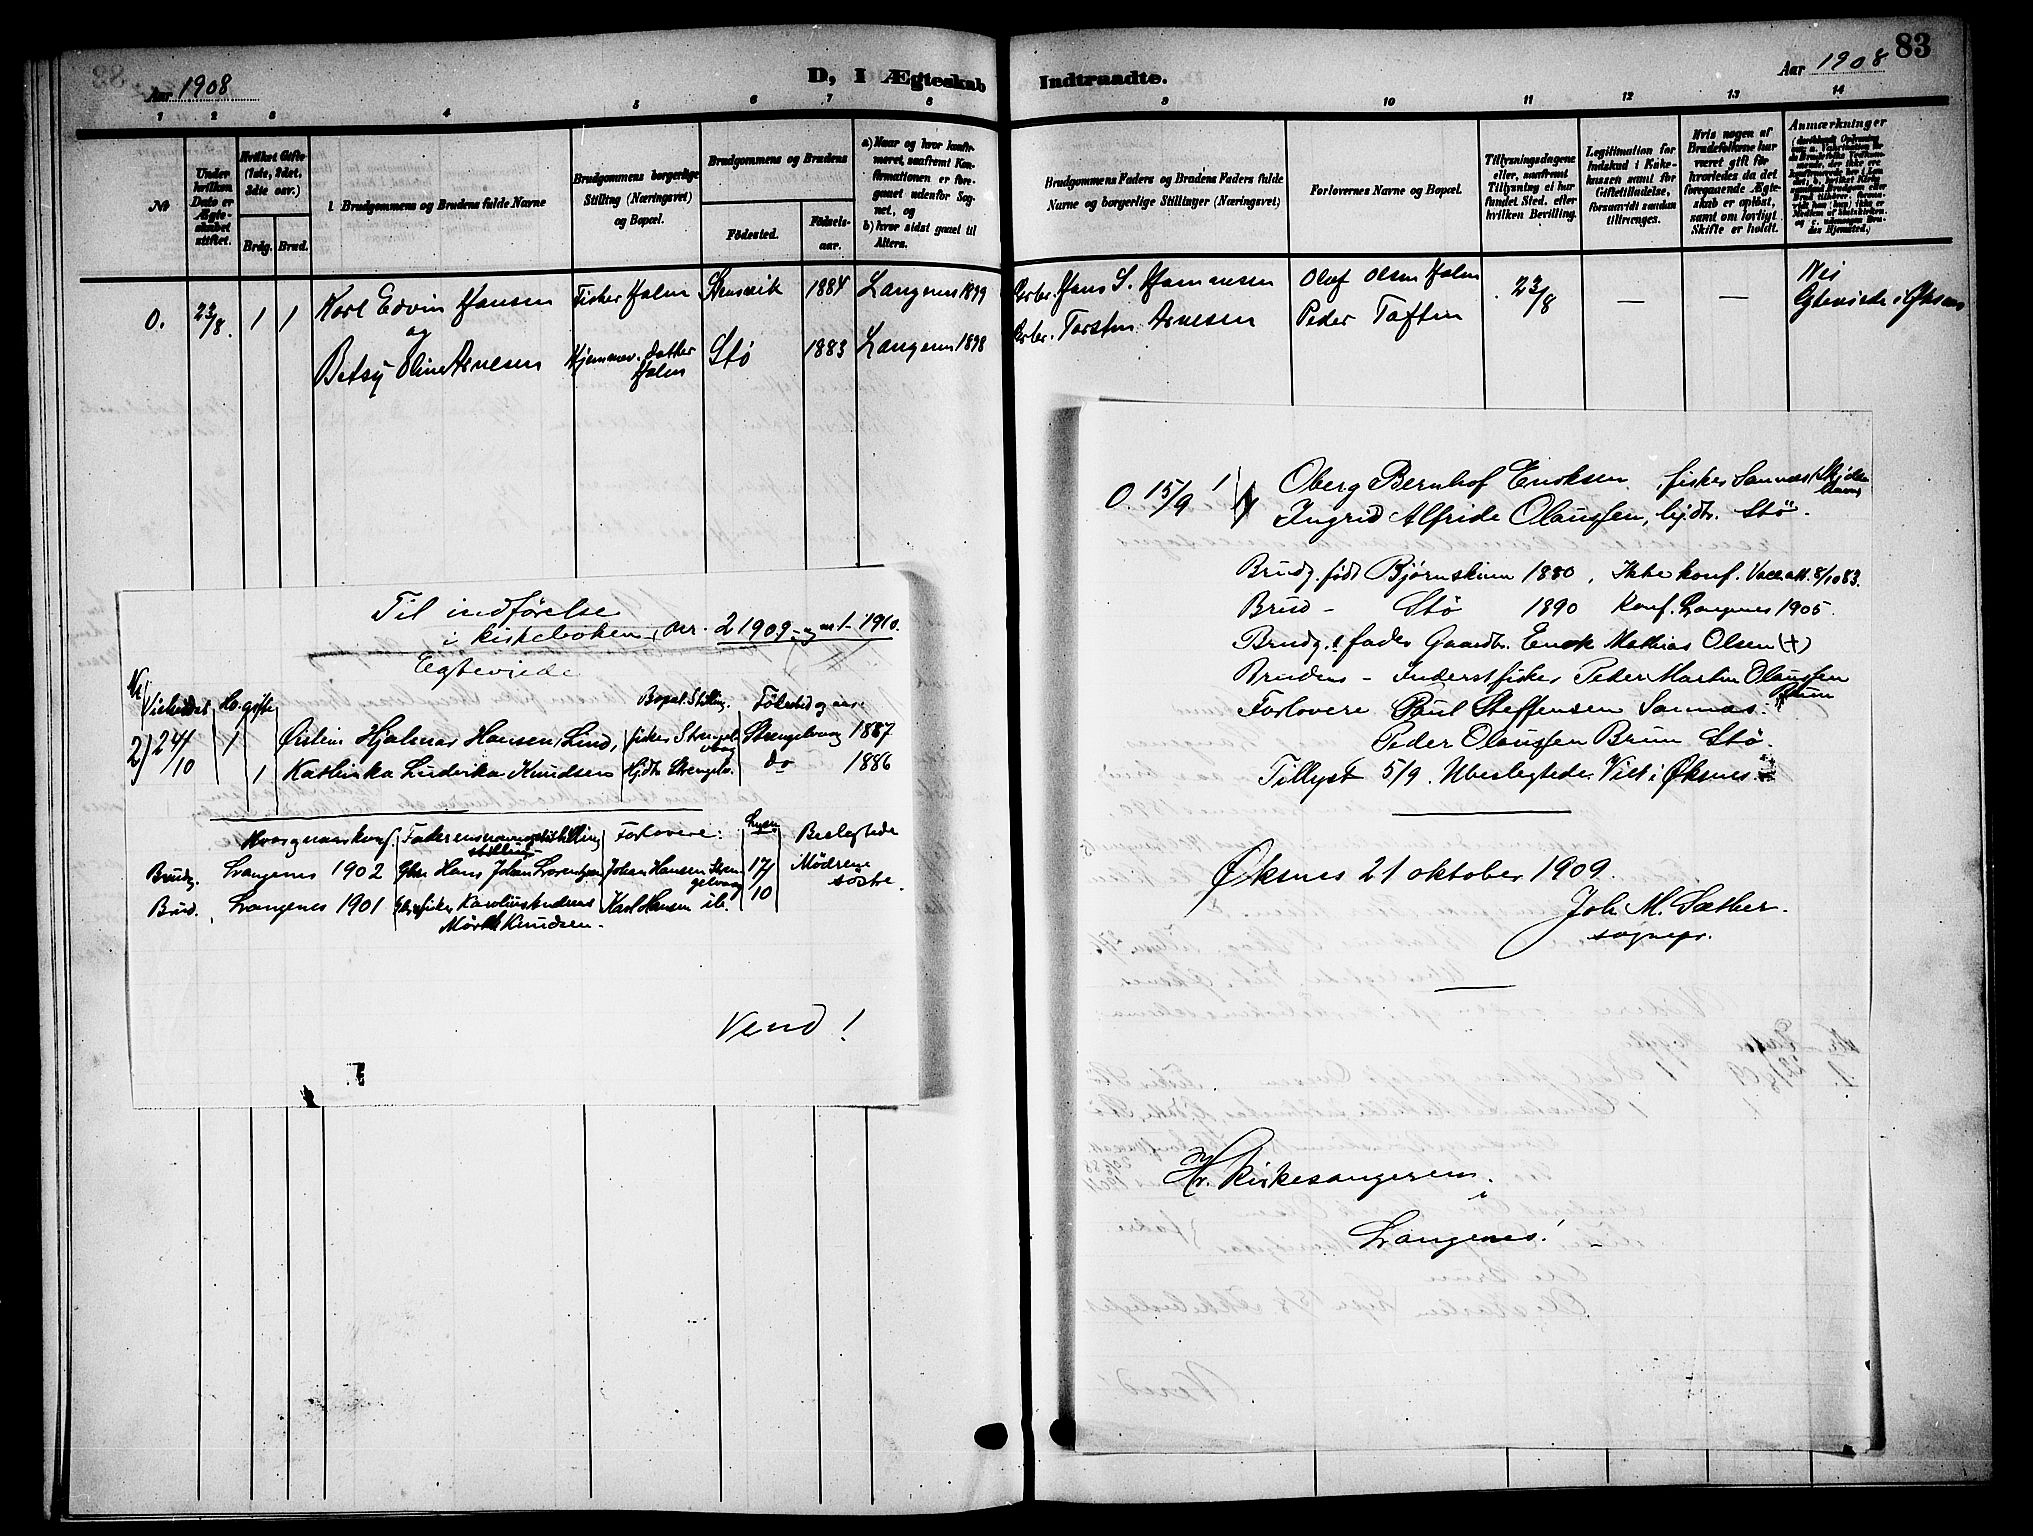 83
Aar 1908
D, I Ægteskab Indtraadte.
Aar 1908
1 2 3 4 5 6 7 8 9 10 11 12 13 14
№
Under hvilken Dato er Ægteskabet stiftet.
Hvilket Gifte (1ste, 2det, 3die osv.)
Brdg. Brud.
1. Brudgommens og Brudens fulde Navne
Brudgommens borgerlige Stilling (Næringsvei) og Bopæl.
Brudgommens og Brudens
Fødested. Fødselsaar.
a) Naar og hvor konfirmeret, saafremt Konfirmationen er foregaaet udenfor Sognet, og
b) hvor sidst gaaet til Alters.
Brudgommens Faders og Brudens Faders fulde Navne og borgerlige Stillinger (Næringsvei)
Forlovernes Navne og Bopæl.
Tillysningsdagene eller, saafremt Tillysning ei har fundet Sted, efter hvilken Bevilling.
Legitimation for Indskud i Enkekassen samt for Giftetilladelse, forsaavidt saadan tiltrænges.
Hvis nogen af Brudefolkene har været gift før hvorledes da det foregaaende Ægteskab er opløst, samt om lovligt Skifte er holdt.
Anmærkninger
0. 23/8. 1 1 Karl Edvin Hansen Fisker Holm 1884 Langenes 1899 Hans S. Hammesen Olaf Olsen Holm 23/8 — — Nei
og
Betsy Oline Arnesen Hjemmev. datter Holm Stø 1883 Langenes 1898 Torsten Arnesen Peder Toften Gteviede i Øksnes
Til indførelse
i kirkeboken, nr. 2 1909 og nr 1 - 1910.
Egteviede
Nr Vielsesdat Ho. gifte Bopæl. Stilling. Födested og aar.
2) 24/10 1 Øistein Hjalmar Hansen Lind, fisker Strengelvaag Strengelvaag 1887
1 Kathinka Ludvika Knudsen Hjdtr Strengelv. do 1886
Hvor og naar konf. Faderens navn og stilling Forlovere: Lysn Beslegtede
Brudg. Langenes 1902 Hans Johan Lorentzen Johan Hansen Strengelvaag 17/10 Mødrene søstre.
Brud. Langenes 1901 fisker Karolius Andreas Mørk Knudsen. Karl Hansen ib.
Vend!
0. 15/9 1 Oberg Bernhof Enoksen, fisker Sannes, Skjoldehavn
1 Ingrid Alfride Olaussen, hjdtr. Stø.
Brudg. født Bjørnskinn 1880, Ikke konf. Vacc.att. 8/10 83.
Brud - Stø 1890 Konf. Langenes 1905.
Brudg.s fader Gaardbr. Enok Mathias Olsen (+)
Brudens - Inderst fisker Peder Martin Olaussen Brun
Forlovere Paul Steffensen Sannes.
Peder Olaussen Brun Stø.
Tillyst 5/9. Ubeslegtede. Viet i Øksnes.
Øksnes 21 oktober 1909.
Joh. M. Sæther.
sognepr.
Hr. Kirkesangeren
i
Langenes!